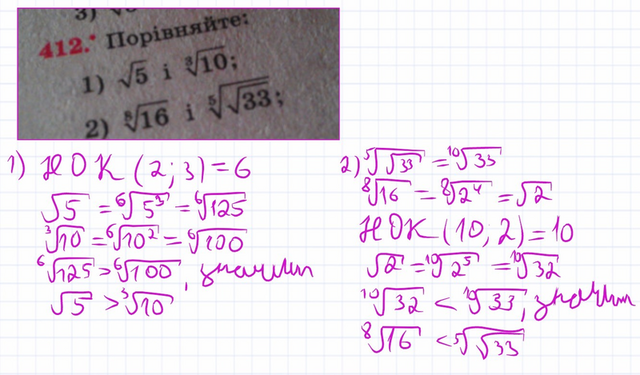 3)
412.* Порівняйте:
1) √5 і ³√10;
2) ⁸√16 і ⁵√√33;
1) НОК (2; 3) = 6
√5 = ⁶√5³ = ⁶√125
³√10 = ⁶√10² = ⁶√100
⁶√125 > ⁶√100, значит
√5 > ³√10
2) ⁵√√33 = ¹⁰√33
⁸√16 = ⁸√2⁴ = √2
НОК (10, 2) = 10
√2 = ¹⁰√2⁵ = ¹⁰√32
¹⁰√32 < ¹⁰√33, значит
⁸√16 < ⁵√√33